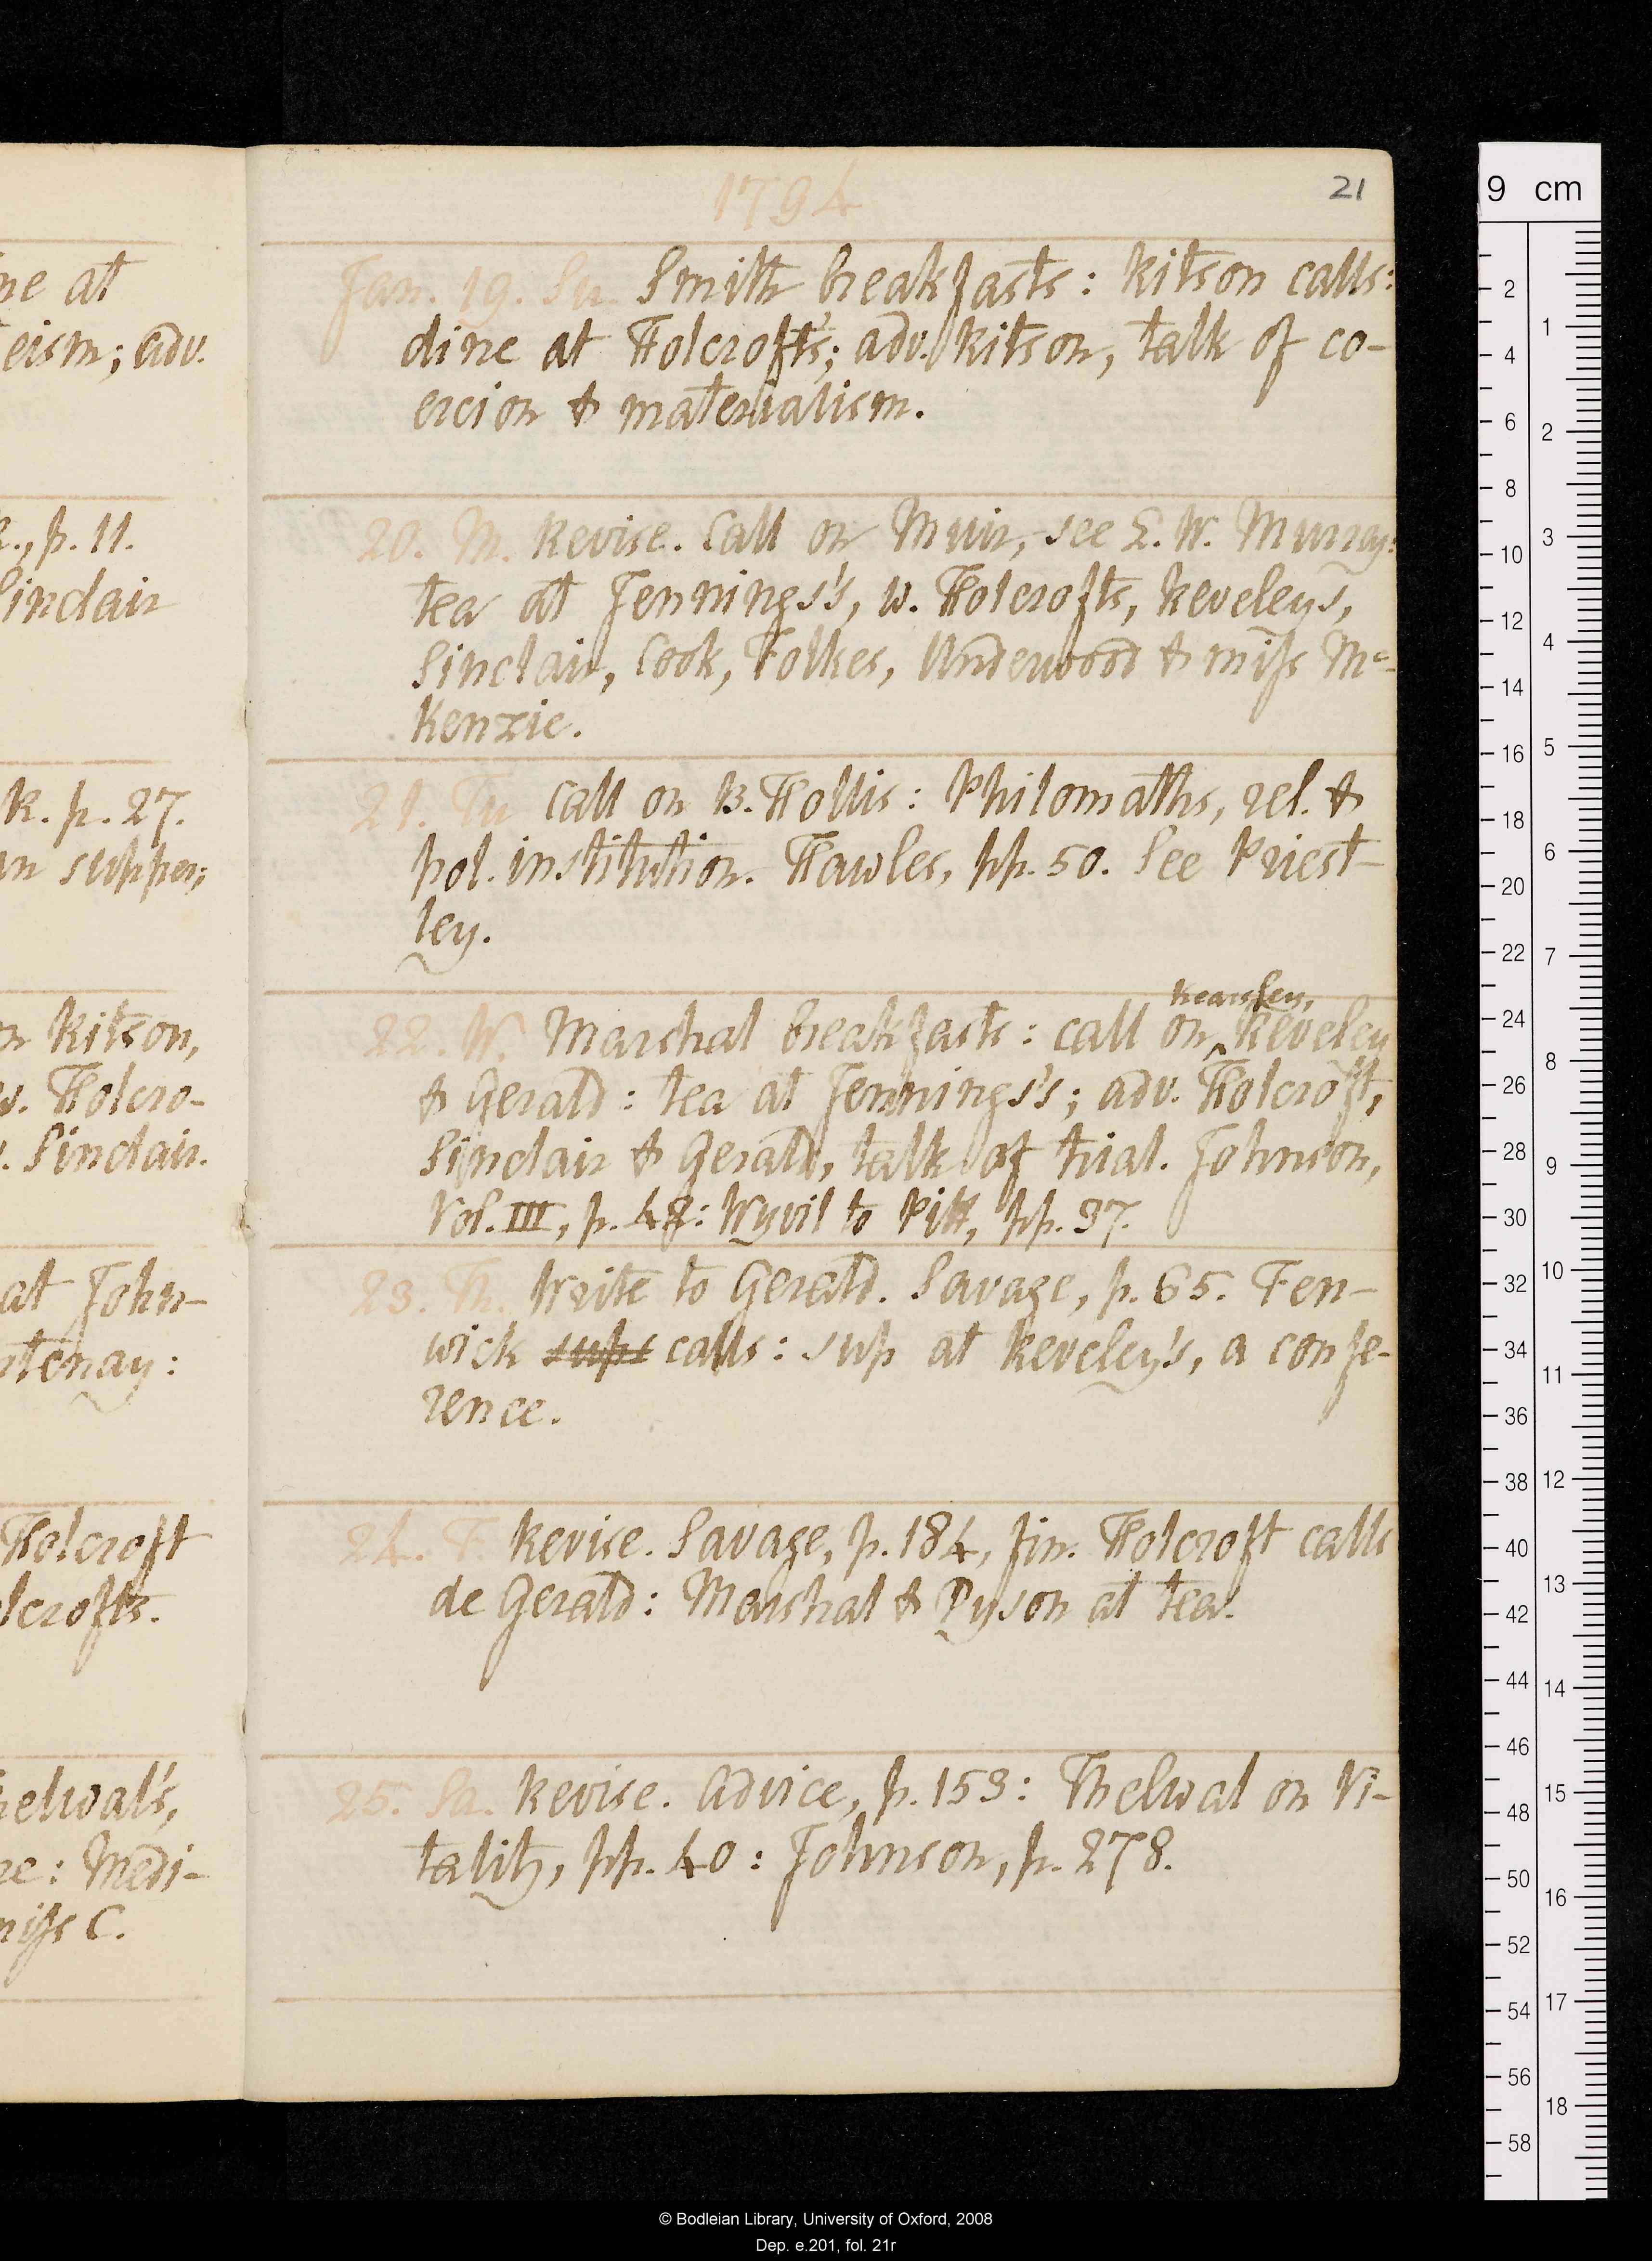 ne at
eism; adv.
., p. 11.
Sinclair
R. p. 27.
n supper;
n Ritson,
w. Holcro-
. Sinclair.
at John-
ntenay:
Holcroft
lcrofts.
helwal's,
re: Medi-
miss C.
21
1794
Jan. 19. Su. Smith breakfasts: Ritson calls:
dine at Holcroft's; adv. Ritson, talk of co-
ercion & materialism.
20. M. Revise. Call on Muir, see L. W. Murray:
tea at Jennings's, w. Holcrofts, Reveleys,
Sinclair, Cook, Folkes, Underwood & miss Mc-
Kenzie.
21. Tu Call on B. Hollis: Philomaths, rel. &
pol. institution. Hawles, pp. 50. See Priest-
ley.
Kearsley,
22. W. Marshal breakfasts: call on ‸ Reveley
& Gerald: tea at Jennings's; adv. Holcroft,
Sinclair & Gerald, talk of trial. Johnson,
Vol. III, p. 48: Wyvil to Pitt, pp. 37.
23. Th. Write to Gerald. Savage, p. 65. Fen-
wick sups calls: sup at Reveley's, a confe-
rence.
24. F. Revise. Savage, p. 184, fin. Holcroft calls
de Gerald: Marshal & Dyson at tea.
25. Sa. Revise. Advice, p. 153: Thelwal on Vi-
tality, pp. 40: Johnson, p. 278.
9 cm
2
4
6
8
10
12
14
16
18
20
22
24
26
28
30
32
34
36
38
40
42
44
46
48
50
52
54
56
58
1
2
3
4
5
6
7
8
9
10
11
12
13
14
15
16
17
18
© Bodleian Library, University of Oxford, 2008
Dep. e.201, fol. 21r